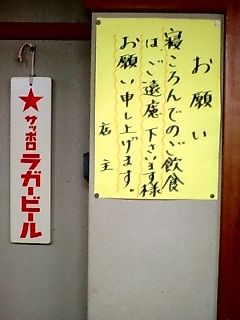 お願い
寝ころんでのご飲食
は、ご遠慮下さいます様
お願い申し上げます。
店主
サッポロ
ラガービール